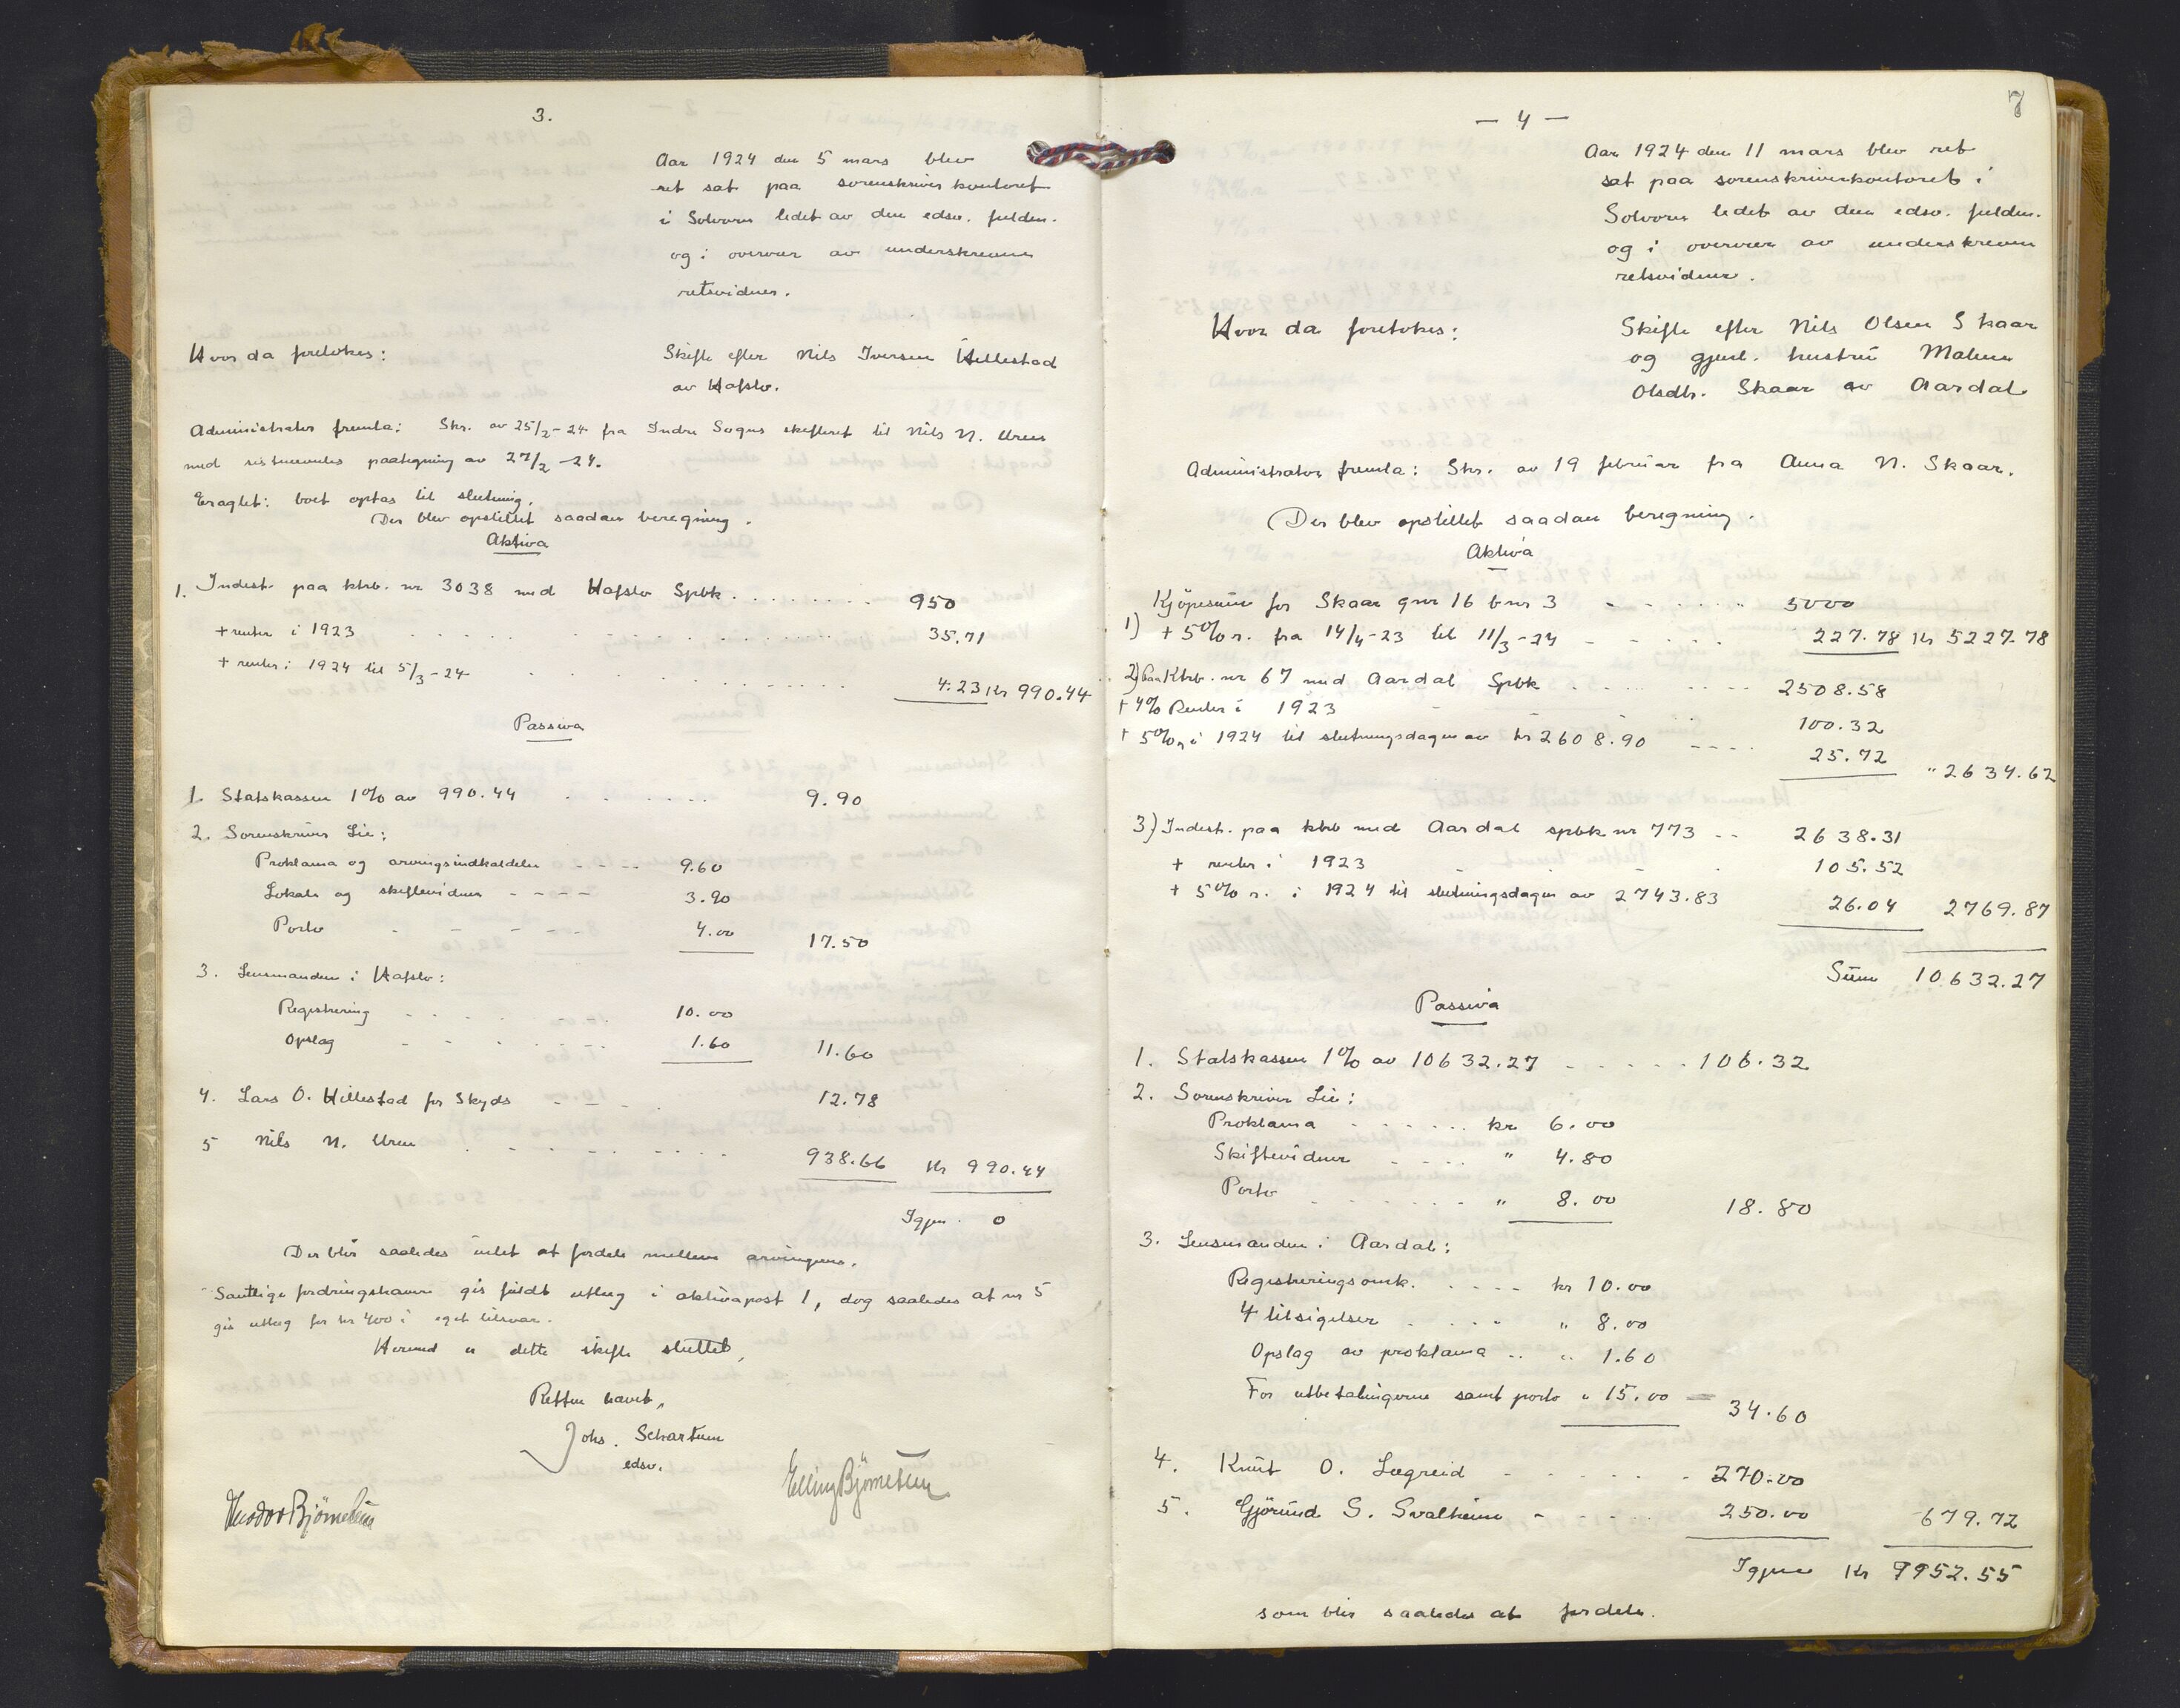 3.
Aar 1924 den 5 mars blev
ret sat paa sorenskriverkontoret
i Solvorn ledet av den edsv. fuldm.
og i overvær av underskrevne
retsvidner.
Hvor da foretokes:
Skifte efter Nils Iversen Hillestad
av Hafslo.
Administrator fremla: Skr. av 25/2-24 fra Indre Sogns skifteret til Nils N. Uren
med sistnævntes paategning av 27/2-24.
Eragtet: boet optas til slutning.
Der blev opstillet saadan beregning.
Aktiva
1. Indest. paa ktrb. nr 3038 med Hafslo Spbk. 950
+ renter i 1923 35.71
+ renter i 1924 til 5/3-24 4.23 Kr 990.44
Passiva
1. Statskassen 1% av 990.44 9.90
2. Sorenskriver Lie:
Proklama og arvingsindkaldelse 9.60
Lokale og skiftevidner 3.90
Porto 4.00 17.50
3. Lensmanden i Hafslo:
Registrering 10.00
Opslag 1.60 11.60
4. Lars O. Hillestad for Skyds 12.78
5 Nils N. Uren 938.66 Kr 990.44
Igjen 0
Der blir saaledes intet at fordele mellem arvingene.
Samtlige fordringshavere gis fuldt utlæg i aktivapost 1, dog saaledes at nr 5
gis utlæg for kr 400 i eget tilsvar.
Hermed er dette skifte sluttet,
Retten hævet,
Johs. Schartum
edsv.
Theodor Bjørnetun
Elling Bjørnetun
7
— 4 —
Aar 1924 den 11 mars blev ret
sat paa sorenskriverkontoret i
Solvorn ledet av den edsv. fuldm.
og i overvær av underskrevne
retsvidner.
Hvor da foretokes:
Skifte efter Nils Olsen Skaar
og gjenl. hustru Malene
Olsdtr. Skaar av Aardal
Administrator fremla: Skr. av 19 februar fra Anna N. Skaar.
Der blev opstillet saadan beregning.
Aktiva
Kjøpesum for Skaar gnr 16 bnr 3 5000
1) + 5% r. fra 14/4-23 til 11/3-24 227.78 Kr 5227.78
2) Paa Ktrb. nr 67 med Aardal Spbk 2508.58
+ 4% Renter i 1923 100.32
+ 5% r. i 1924 til slutningsdagen av kr 2608.90 25.72 " 2634.62
3) Indest. paa ktrb med Aardal spbk nr 773 2638.31
+ renter i 1923 105.52
+ 5% r. i 1924 til slutningsdagen av 2743.83 26.04 2769.87
Sum 10632.27
Passiva
1. Statskassen 1% av 10632.27 106.32
2. Sorenskriver Lie:
Proklama kr 6.00
Skiftevidner " 4.80
Porto " 8.00 18.80
3. Lensmanden i Aardal:
Registreringsomk. kr 10.00
4 tilsigelser " 8.00
Opslag av proklama " 1.60
For utbetalingerne samt porto " 15.00 = 34.60
4. Knut O. Lægreid 270.00
5. Gjørund S. Svalheim 250.00 679.72
Igjen Kr 9952.55
som blir saaledes at fordele.